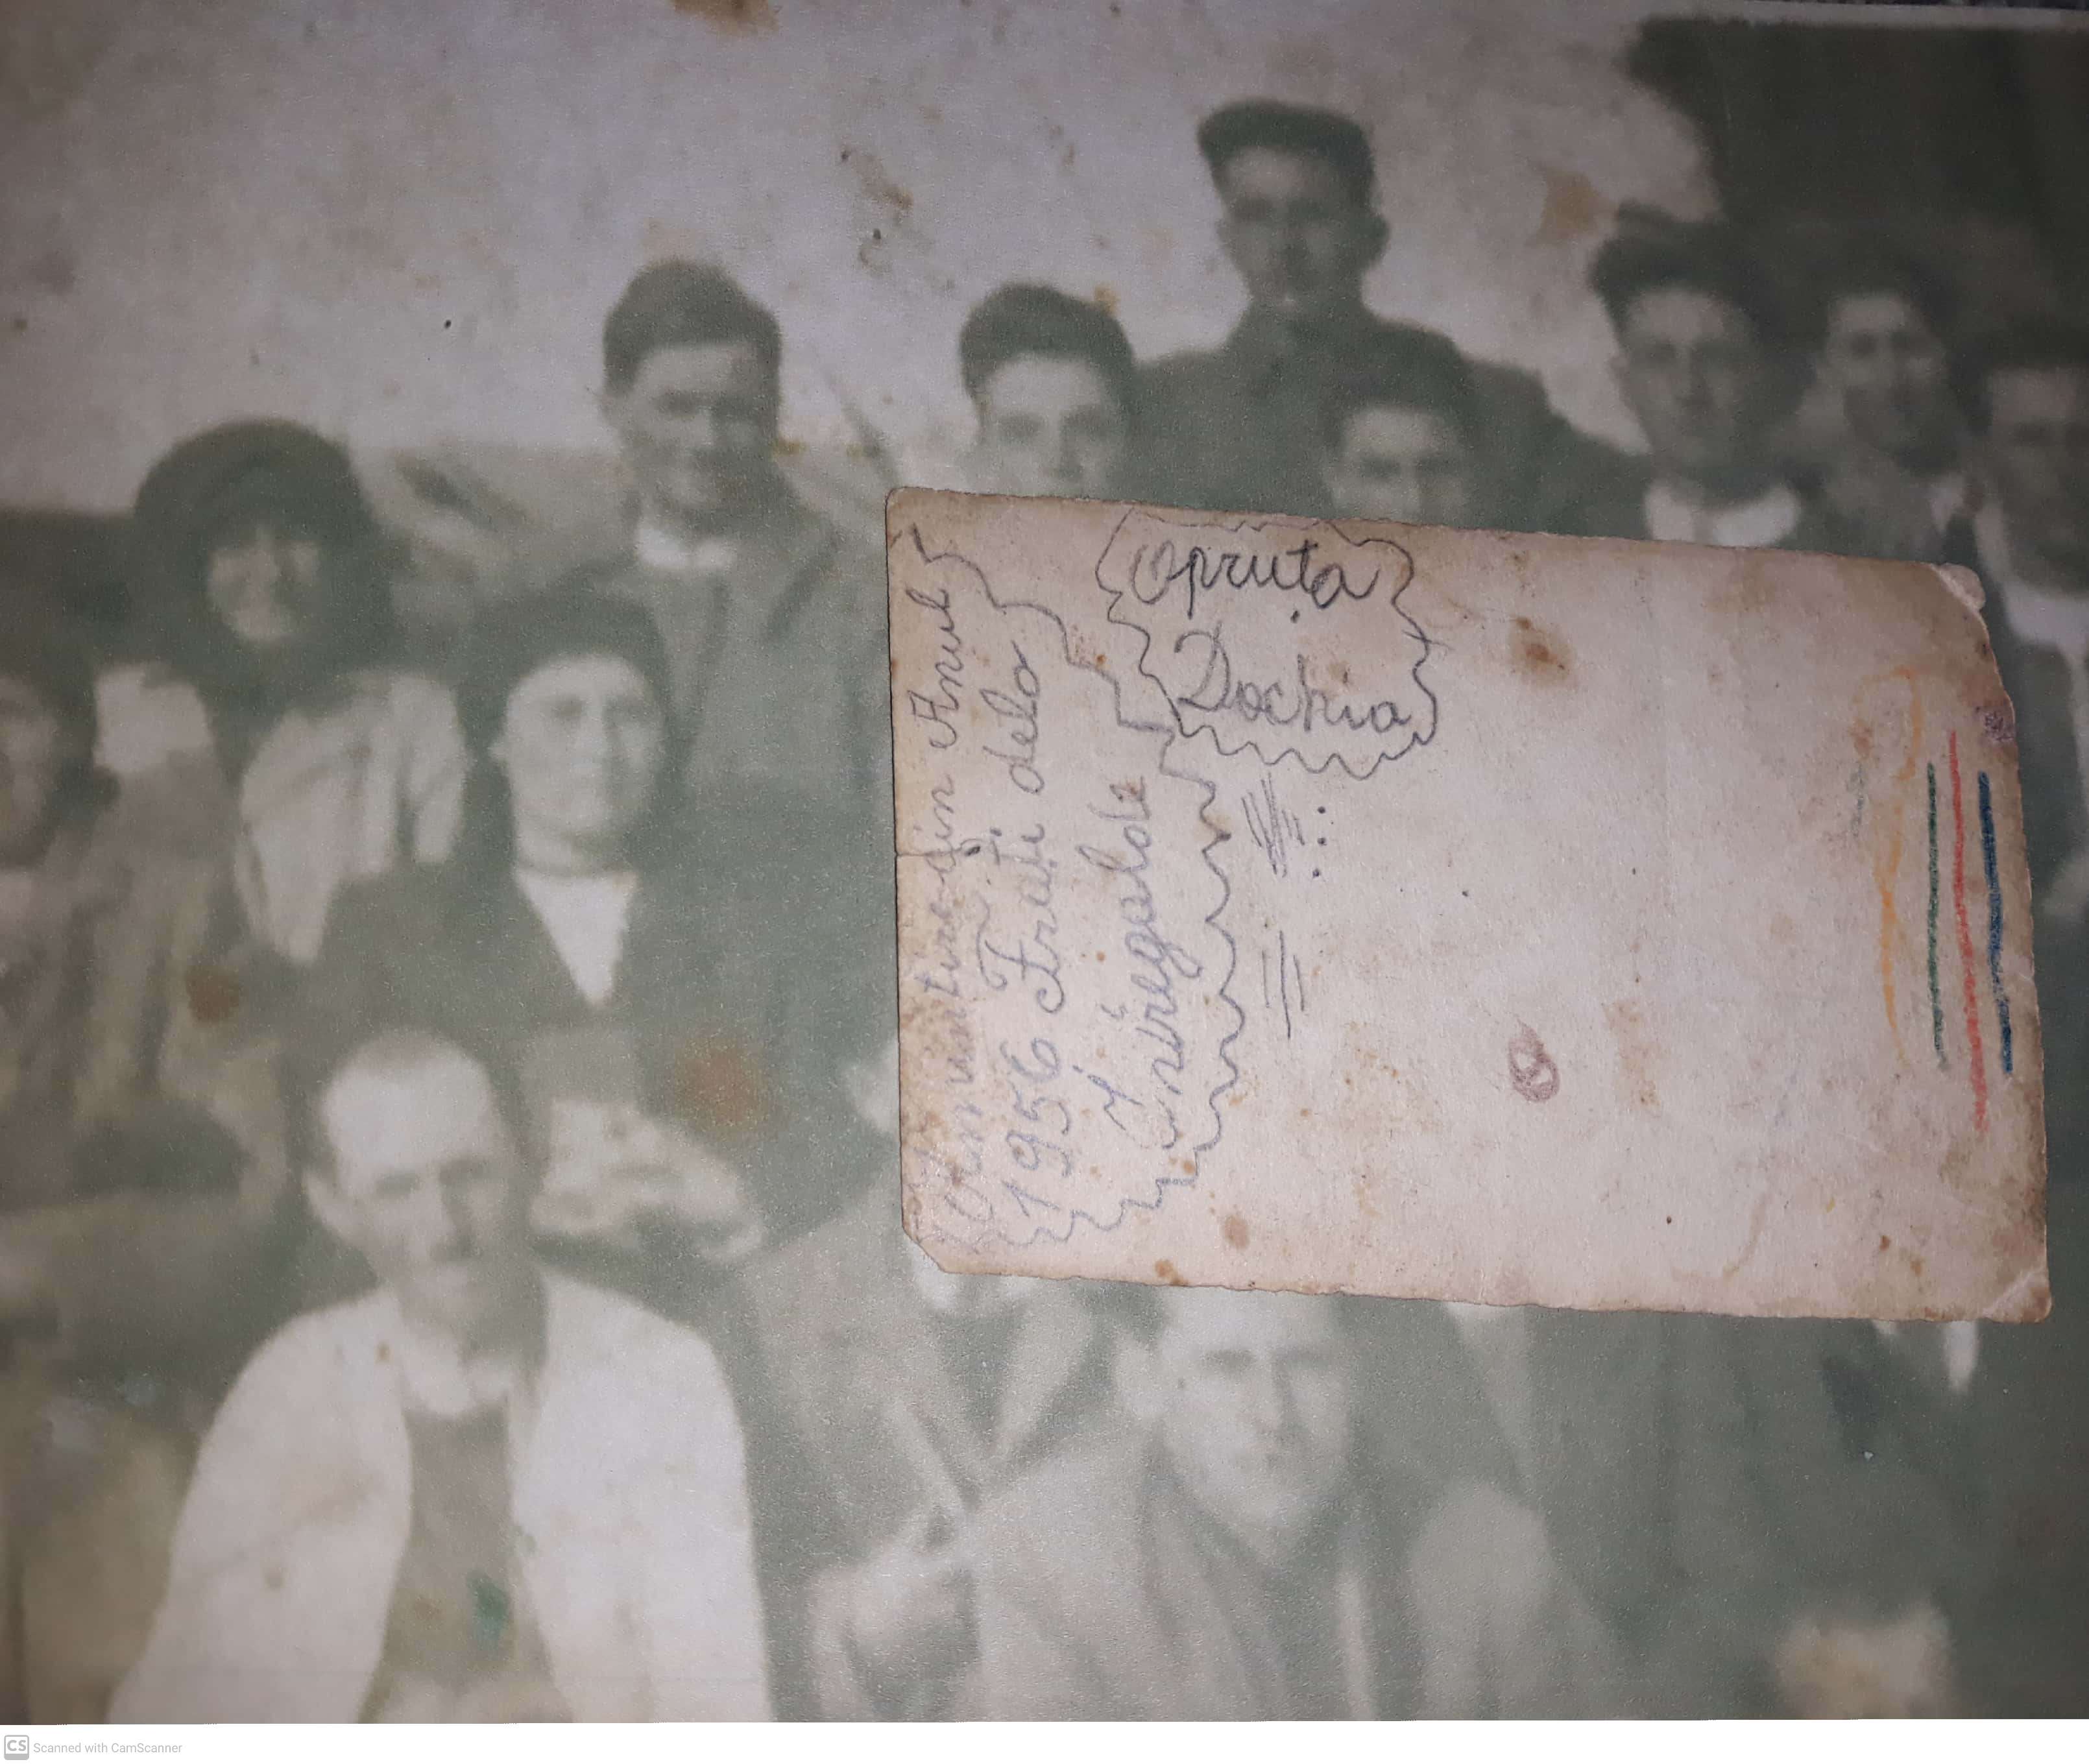 Amintire din Anul
1956 Frati dela
Isvregalde
Opruta
Dochia
CS Scanned with CamScanner